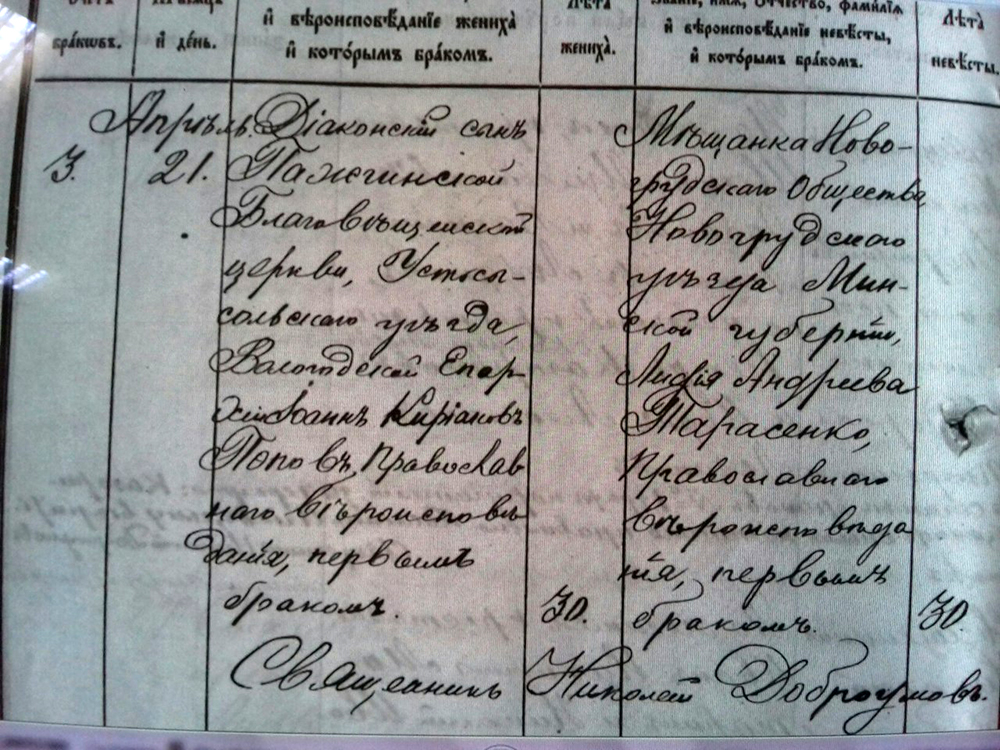 браковъ.
и день.
и вѣроисповѣданіе жениха
и которымъ бракомъ.
Лѣта
жениха.
званіе, имя, отчество, фамилія
и вѣроисповѣданіе невѣсты,
и которымъ бракомъ.
Лѣта
невѣсты.
3.
Апрѣль.
21.
Діаконскій сынъ
Пажгинской
Благовѣщенской
церкви, Устьсы-
сольскаго уѣзда,
Вологодской Епар-
хіи Іоаннъ Киріаковъ
Поповъ, Православ
наго вѣроисповѣ
данія, первымъ
бракомъ.
30.
Мѣщанка Ново-
грудскаго Общества,
Новогрудскаго
уѣзда Мин-
ской губерніи,
Лидія Андреева
Тарасенко,
Православнаго
вѣроисповѣда
нія, первымъ
бракомъ.
30.
Священникъ Николай Доброумовъ.